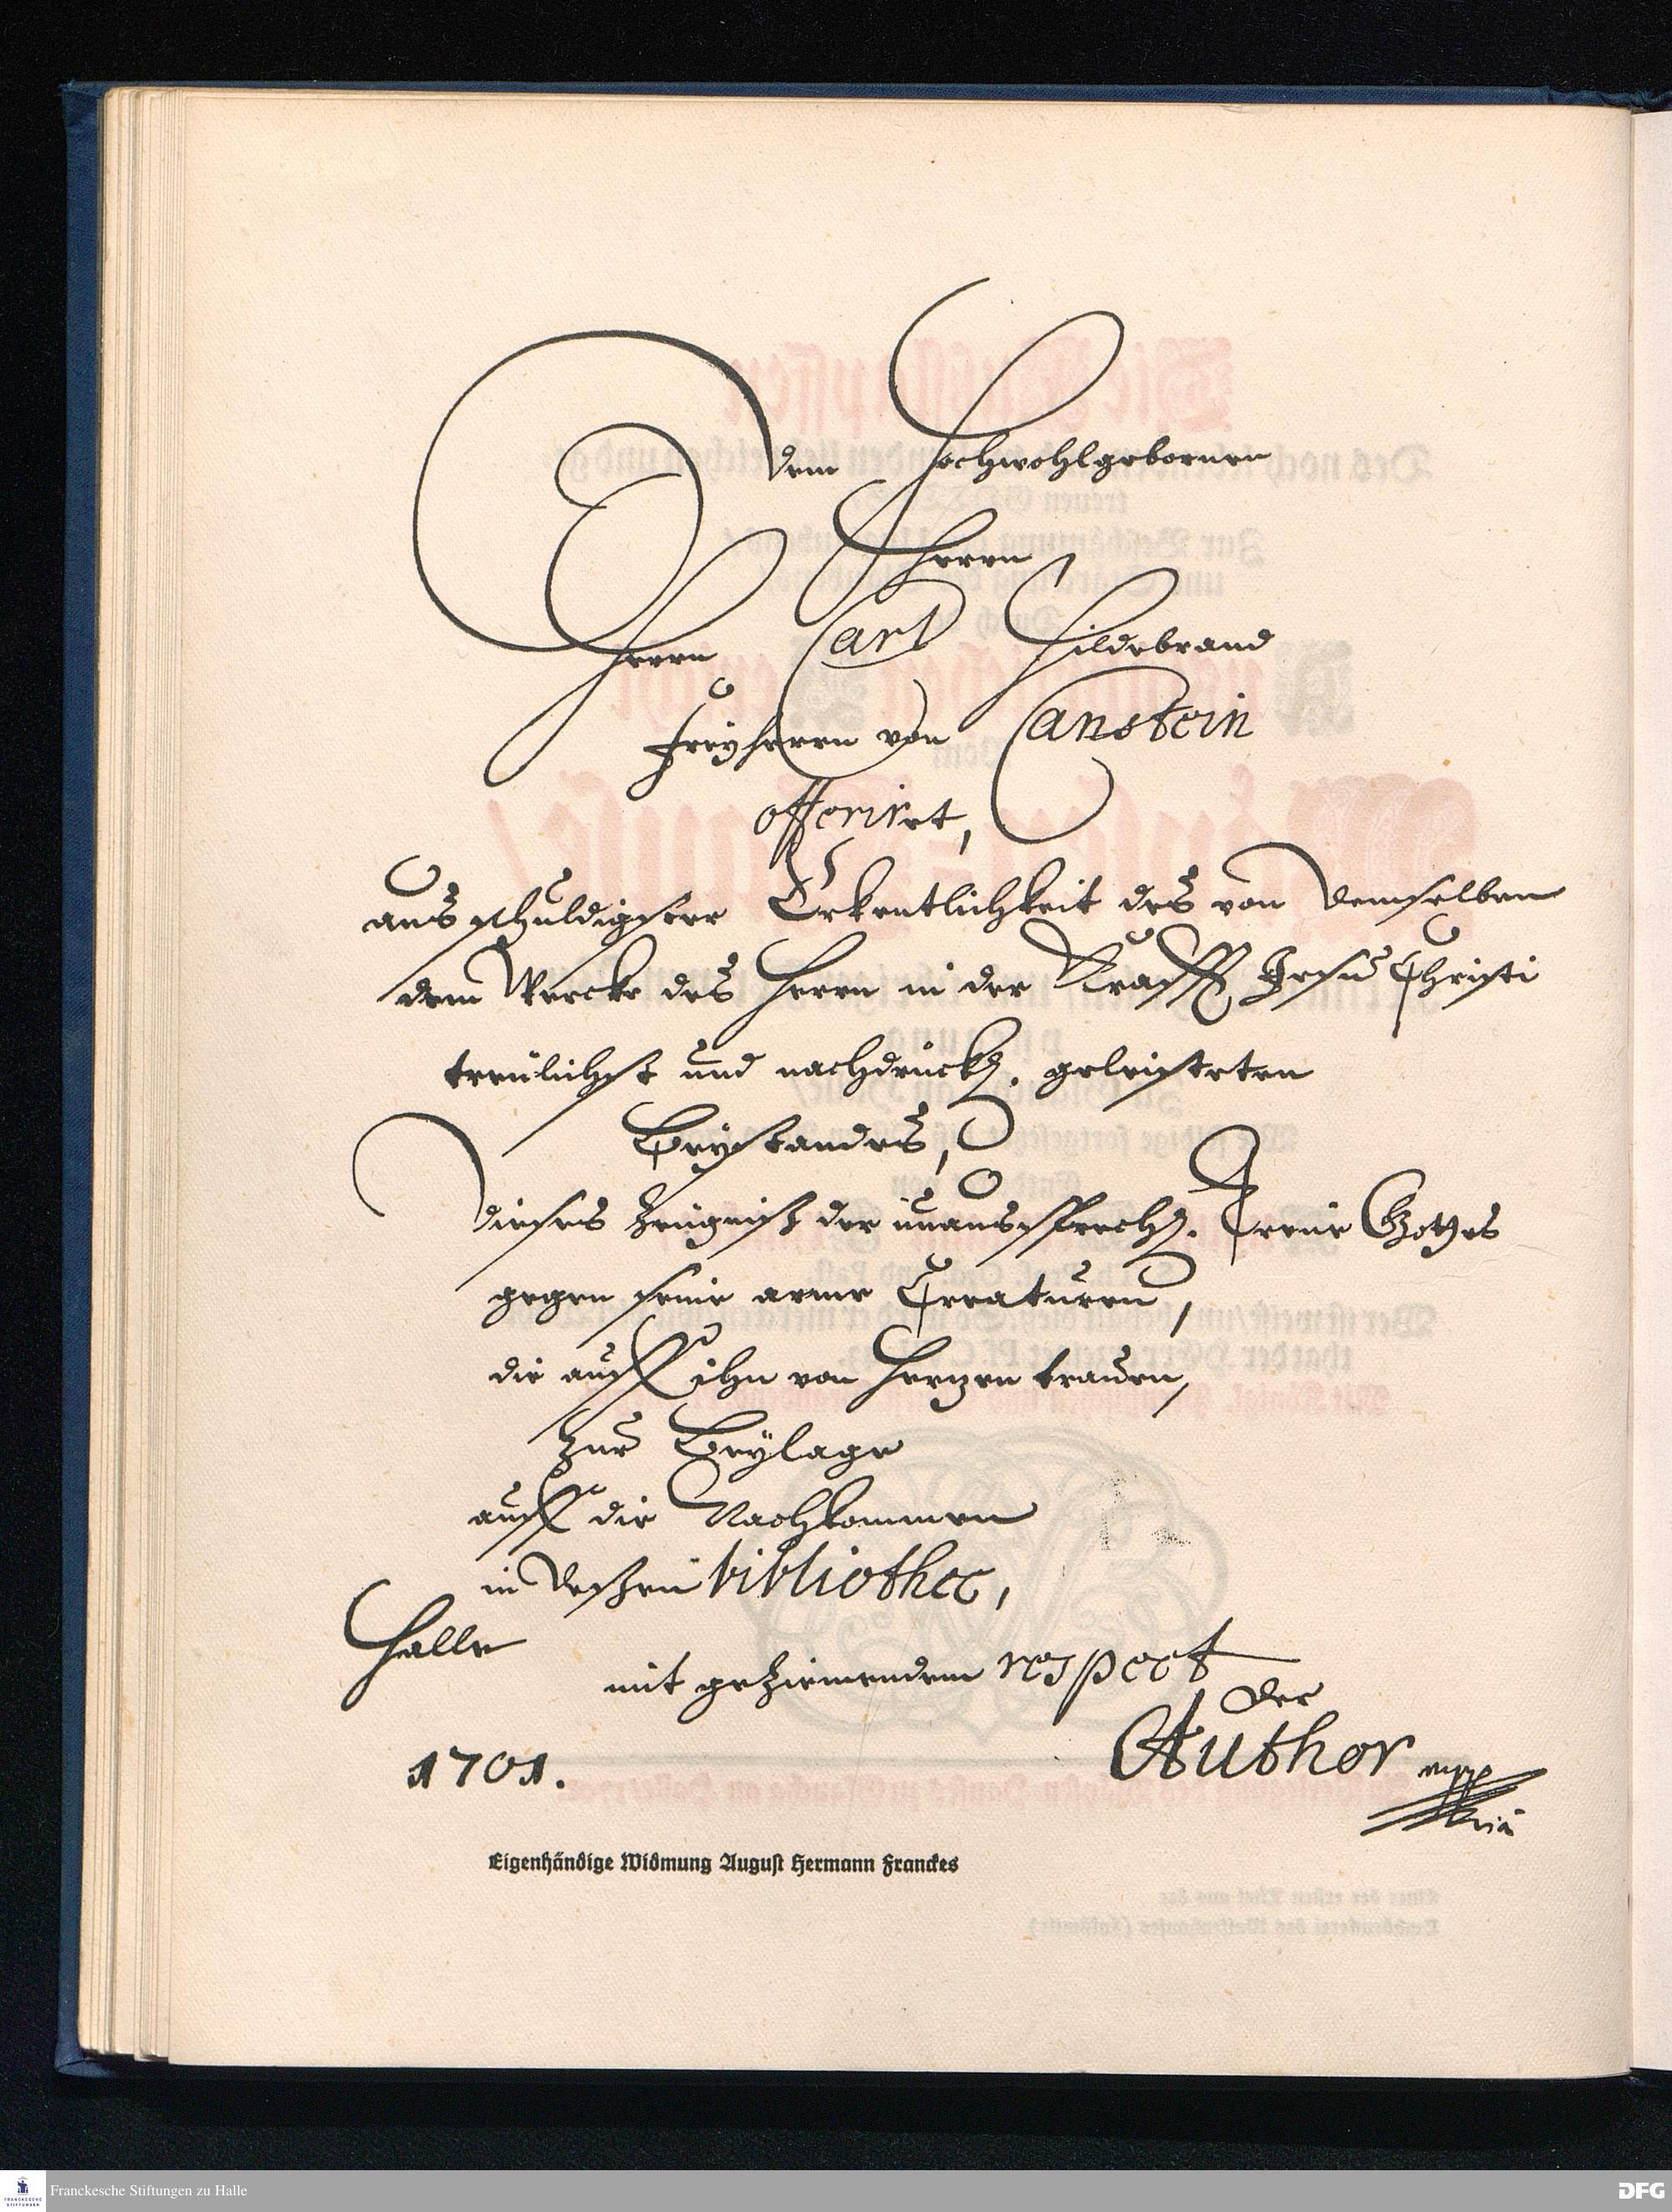 Dem Hochwohlgebornen
Herrn
Herrn Carl Hildebrand
Freyherrn von Canstein
offeriret,
aus schuldigster Erkentlichkeit des von demselben
dem Wercke des Herrn in der Krafft Jesu Christi
treulichst und nachdrückl. geleisteten
Beystandes,
dieses Zeugniß der unaussprechl. Treue Gottes
gegen seine arme Creaturen,
die auff ihn von Hertzen trauen,
zur Beylage
auff die Nachkommen
in Deßen bibliothec,
Halle
mit geziemendem respect
der
1701.
Author mppria
Eigenhändige Widmung August Hermann Franckes
Franckesche Stiftungen zu Halle
DFG